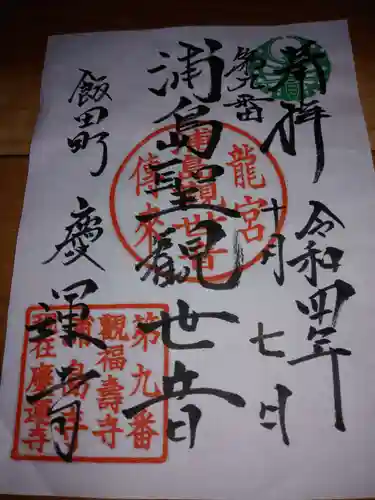 奉拝
令和四年
十月七日
第九番
浦島聖観世音
飯田町
慶運寺
龍宮
浦島観世音
傳来
第九番
観福壽寺
浦島寺
在慶運寺